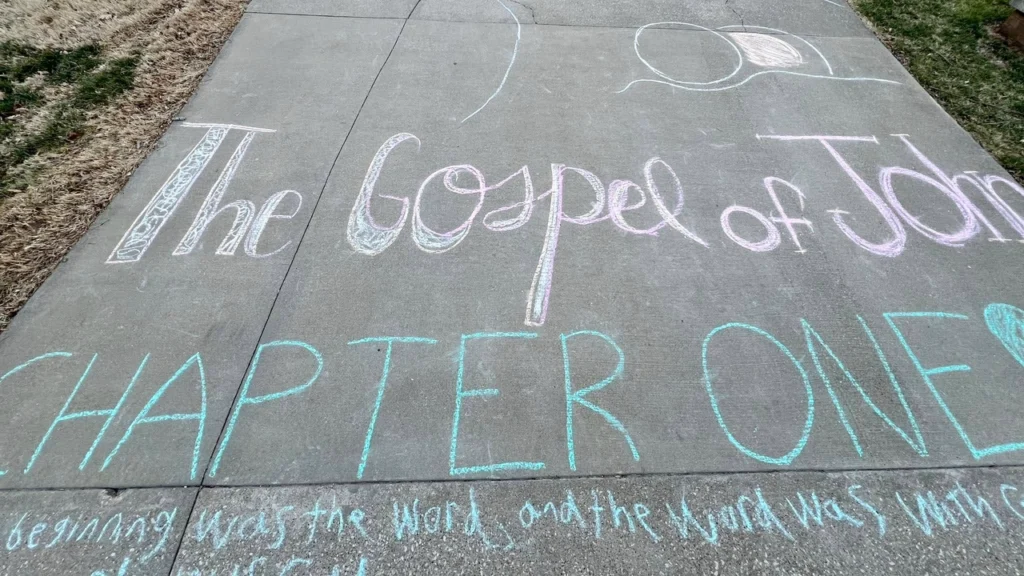 The Gospel of John
CHAPTER ONE
beginning was the Word, and the Word Was With